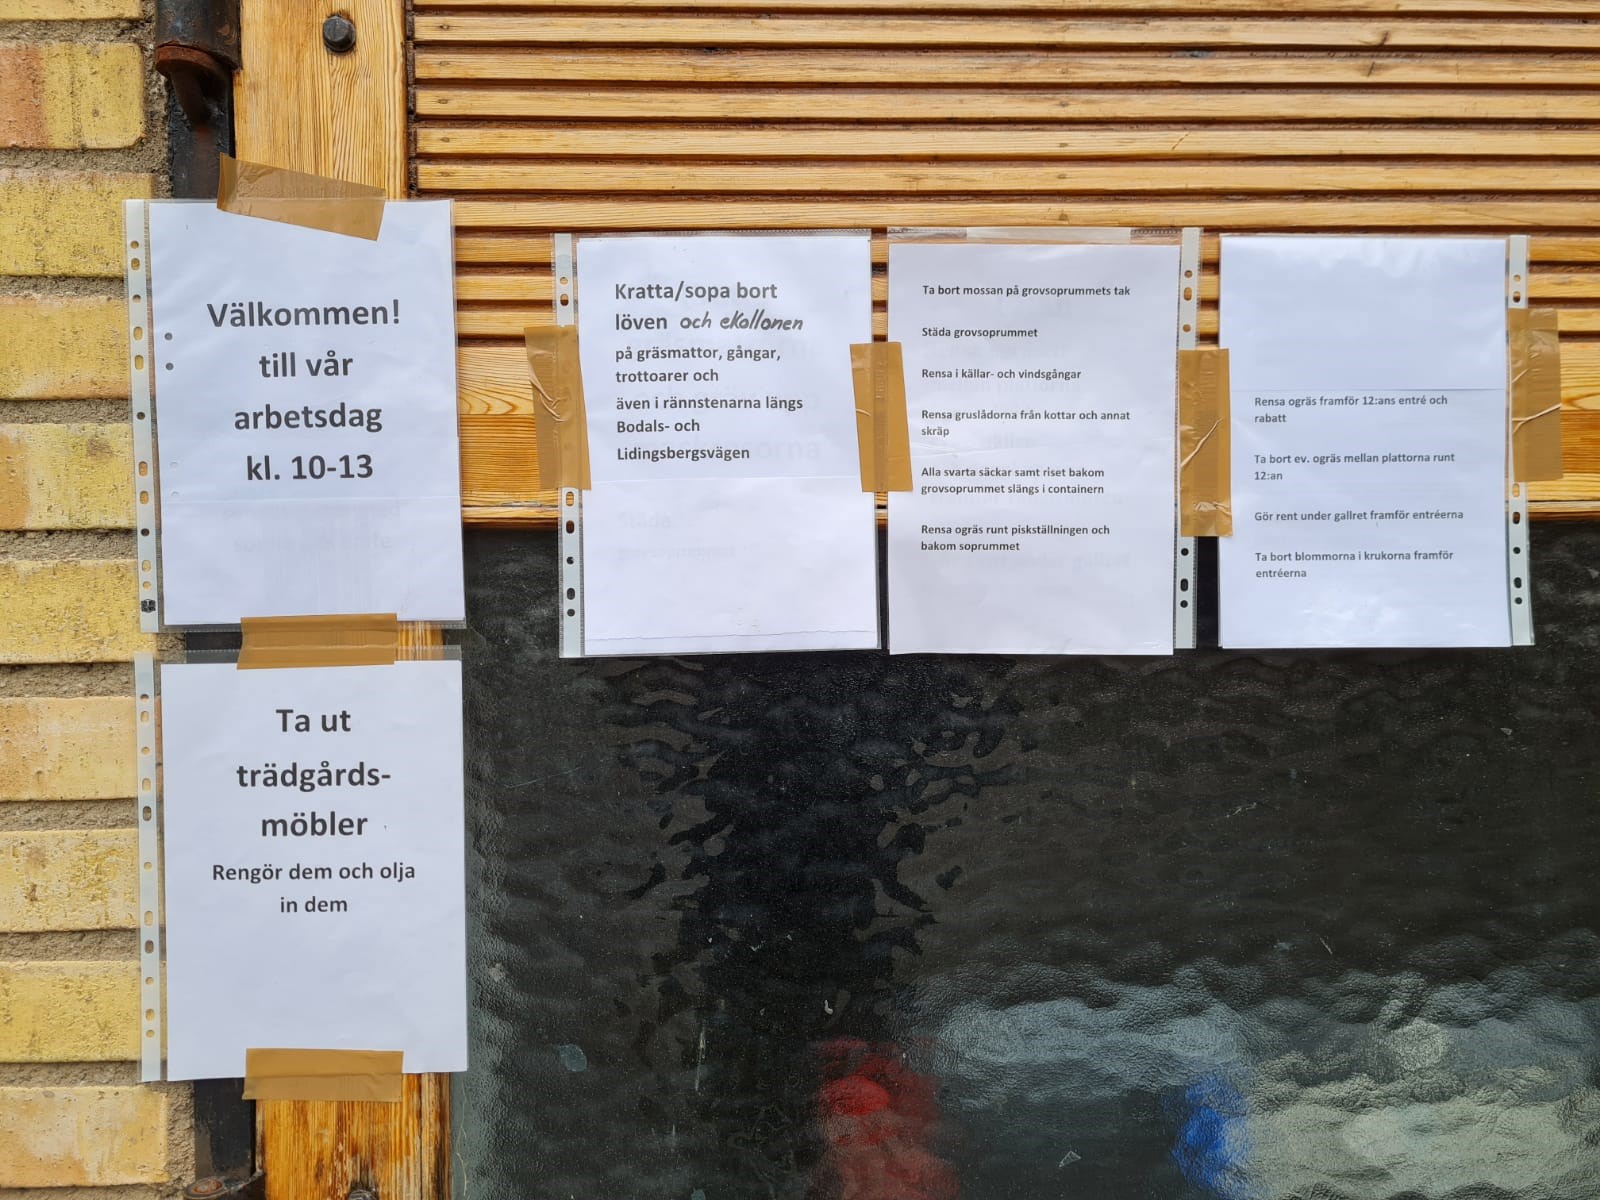 Välkommen!
till vår
arbetsdag
kl. 10-13
Ta ut
trädgårds-
möbler
Rengör dem och olja
in dem
Kratta/sopa bort
löven och ekollonen
på gräsmattor, gångar,
trottoarer och
även i rännstenarna längs
Bodals- och
Lidingsbergsvägen
Ta bort mossan på grovsoprummets tak
Städa grovsoprummet
Rensa i källar- och vindsgångar
Rensa gruslådorna från kottar och annat
skräp
Alla svarta säckar samt riset bakom
grovsoprummet slängs i containern
Rensa ogräs runt piskställningen och
bakom soprummet
Rensa ogräs framför 12:ans entré och
rabatt
Ta bort ev. ogräs mellan plattorna runt
12:an
Gör rent under gallret framför entréerna
Ta bort blommorna i krukorna framför
entréerna